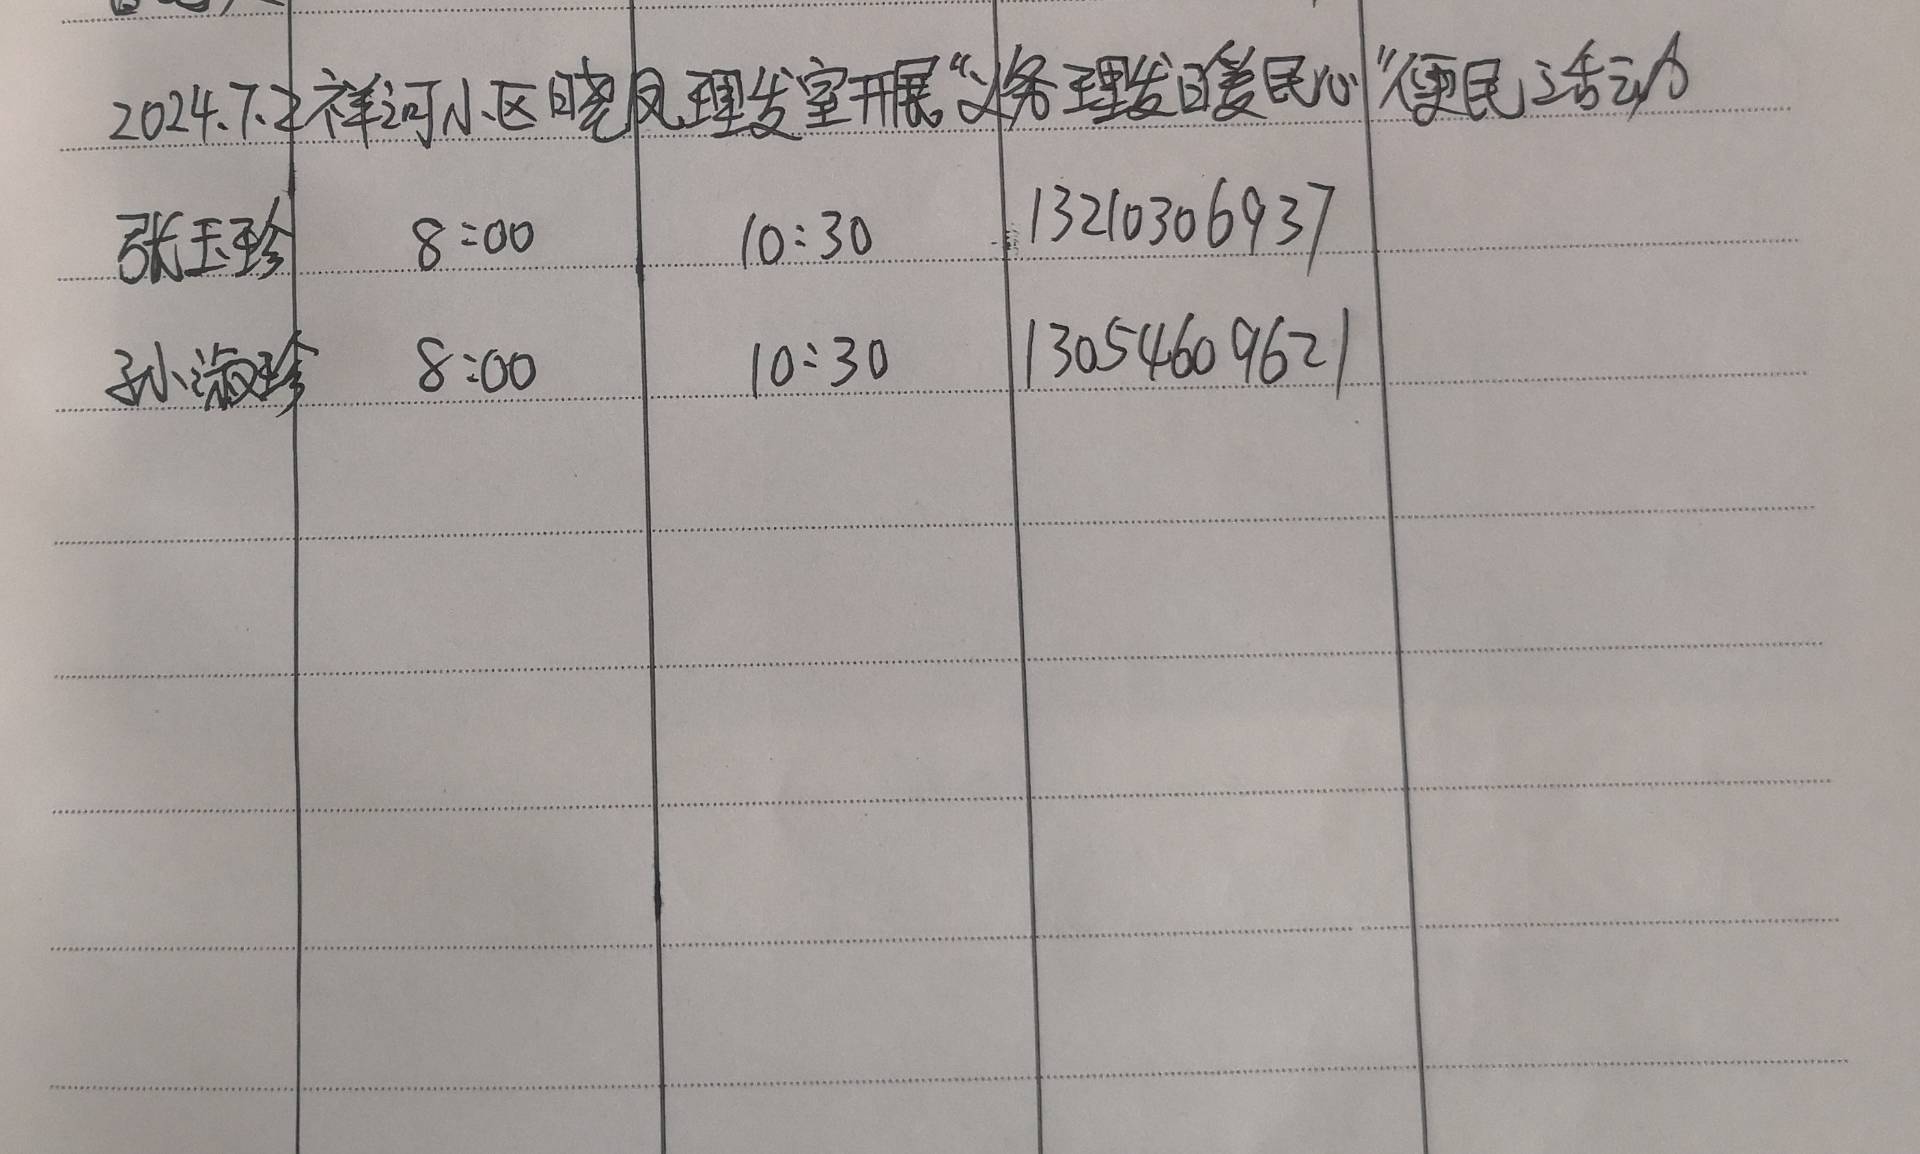 2024.7.2祥河小区晓风理发室开展“义务理发日暖民心”便民活动
张玉珍 8:00 10:30 13210306937
孙淑珍 8:00 10:30 13054609621